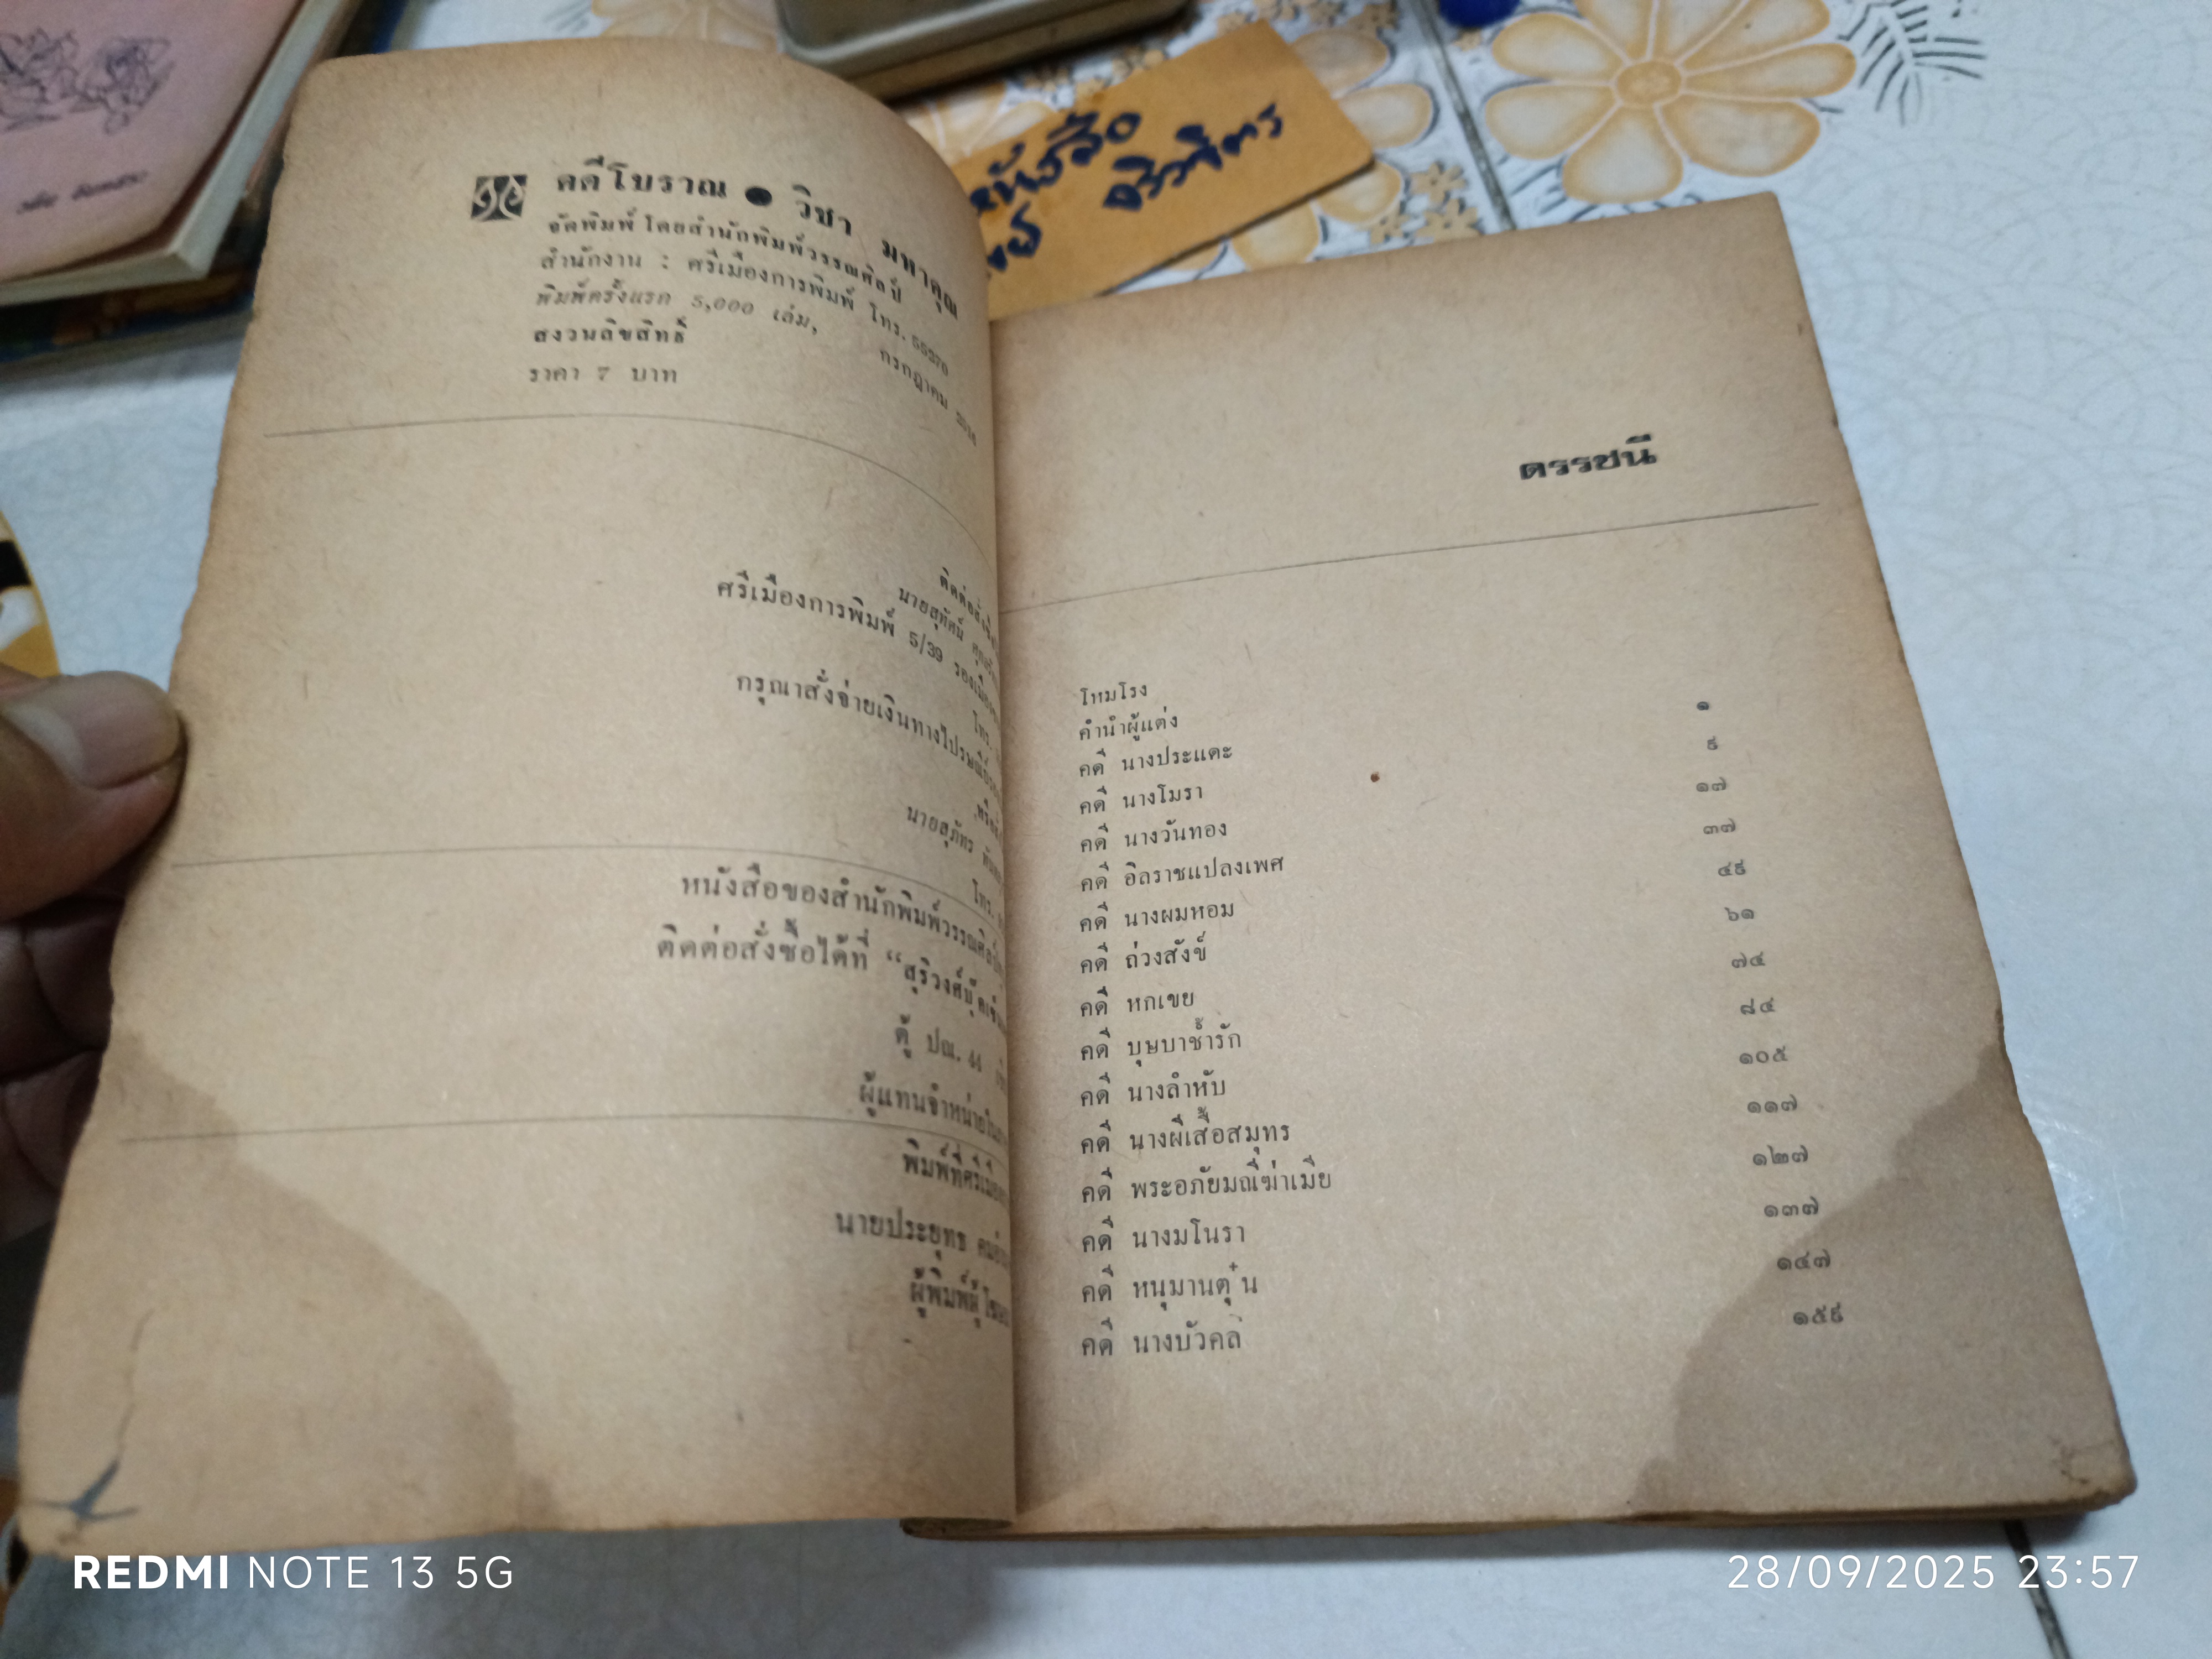 คดีโบราณ ● วิชา มหาคุณ
จัดพิมพ์ โดยสำนักพิมพ์วรรณศิลป์
สำนักงาน : ศรีเมืองการพิมพ์ โทร. 55270
พิมพ์ครั้งแรก 5,000 เล่ม, กรกฎาคม
สงวนลิขสิทธิ์
ราคา 7 บาท
ติดต่อสั่งซื้อ
นายสุทัศน์
ศรีเมืองการพิมพ์ 5/39 รองเมือง
โทร.
กรุณาสั่งจ่ายเงินทางไปรษณีย์
นายสุภัทร
โทร.
หนังสือของสำนักพิมพ์วรรณศิลป์
ติดต่อสั่งซื้อได้ที่ “สุริวงศ์บุ๊คเซ็น
ตู้ ปณ. 44
ผู้แทนจำหน่ายใน
พิมพ์ที่ศรีเมือง
นายประยุทธ
ผู้พิมพ์ผู้โฆษณา
ดรรชนี
โหมโรง
คำนำผู้แต่ง ๑
คดี นางประแดะ ๙
คดี นางโมรา ๑๗
คดี นางวันทอง ๓๗
คดี อิลราชแปลงเพศ ๔๙
คดี นางผมหอม ๖๑
คดี ถ่วงสังข์ ๗๔
คดี หกเขย ๘๔
คดี บุษบาช้ำรัก ๑๐๕
คดี นางลำหับ ๑๑๗
คดี นางผีเสื้อสมุทร ๑๒๗
คดี พระอภัยมณีฆ่าเมีย ๑๓๗
คดี นางมโนรา ๑๔๗
คดี หนุมานตุ๋น ๑๕๙
คดี นางบัวคลี่
REDMI NOTE 13 5G
28/09/2025 23:57